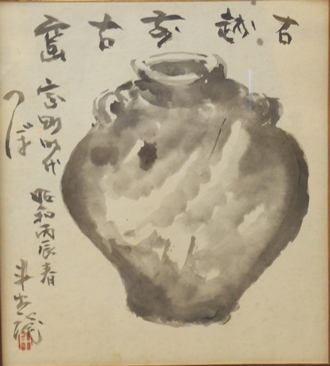 古越前古窯
室町時代
つぼ
昭和丙辰春